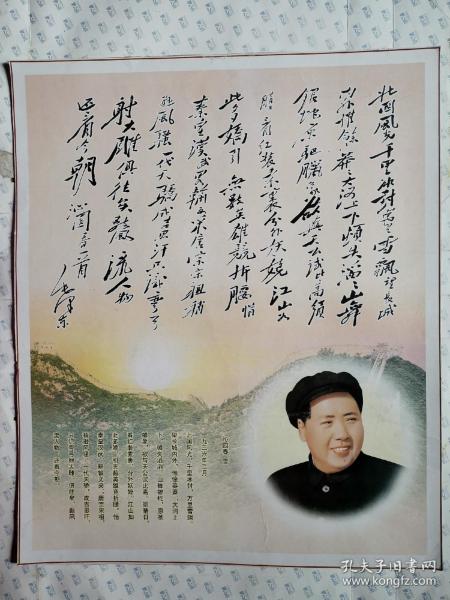 北國風光千里冰封萬里雪飄望長城
内外惟餘莽莽大河上下頓失滔滔山舞
銀蛇原馳臘象欲與天公試比高須
晴日看紅裝素裹分外妖嬈江山如
此多嬌引無數英雄競折腰惜
秦皇漢武略輸文采唐宗宋祖稍
遜風騷一代天驕成吉思汗只識彎弓
射大雕俱往矣數風流人物
還看今朝 沁園春一首
毛澤東
沁园春·雪
一九三六年二月
北国风光，千里冰封，万里雪飘。
望长城内外，惟余莽莽；大河上
下，顿失滔滔。山舞银蛇，原驰
蜡象，欲与天公试比高。须晴日，
看红装素裹，分外妖娆。江山如
此多娇，引无数英雄竞折腰。惜
秦皇汉武，略输文采；唐宗宋祖，
稍逊风骚。一代天骄，成吉思汗，
只识弯弓射大雕。俱往矣，数风
流人物，还看今朝。
孔夫子旧书网
www.kongfz.com